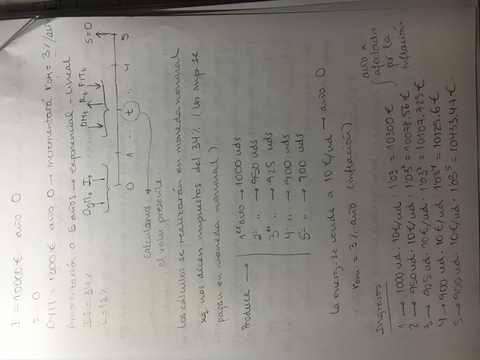 I = 10000 € año 0
S = 0
O y M = 1300 € año 0 → Incrementará rom = 3 %/año
Amortización a 5 años → exponencial - Lineal
IS = 34 %
i = 12 %
I0
S = 0
0 1 ... t ... 4 5
Calculamos
el valor presente
Los cálculos se realizarán en moneda nominal
xq nos dicen impuestos del 34% (los imp se
pagan en moneda nominal).
Produce → 1er año → 1000 uds
2º " → 950 uds
3er " → 925 uds
4º " → 900 uds
5º " → 900 uds
La energ. se vende a 10 €/ud → año 0
rom = 3 % año (inflación)
Ingresos
1 → 1000 ud · 10€/ud · 1'03 = 10300 €
2 → 950 ud · 10€/ud · 1'03² = 10078.56 €
3 → 925 ud · 10€/ud · 1'03³ = 10107.725 €
4 → 900 ud · 10€/ud · 1'03⁴ = 10129.6 €
5 → 900 ud · 10€/ud · 1'03⁵ = 10433.47 €
año x
afectado
por la
inflación